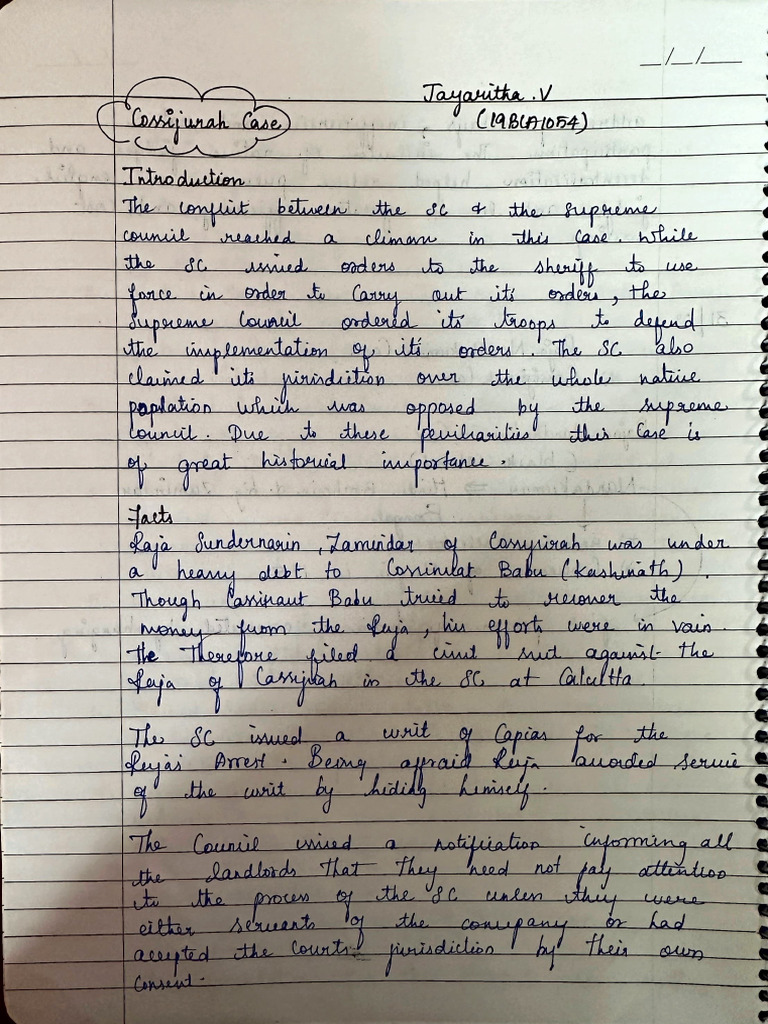 _/_/__
Jayaritha.V
Cossijurah Case
(19BLA1054)
Introduction
The conflict between the SC & the Supreme
council reached a climax in this case. While
the SC issued orders to the sheriff to use
force in order to carry out its orders, the
Supreme Council ordered its troops to defend
the implementation of its orders. The SC also
claimed its jirisdiction over the whole native
poplation which was opposed by the supreme
council. Due to these peculiarities this case is
of great historical importance.
Facts
Raja Sundernarin, Zamindar of Cossyirah was under
a heavy debt to Cossinaut Babu (Kashinath).
Though Cassinaut Babu tried to recover the
money from the Raja, his efforts were in vain.
He Therefore filed a civil suit against the
Raja of Cassijrah in the SC at Calcutta.
The SC issued a writ of Capias for the
Raja's Arrest. Being affraid Raja avoided service
of the writ by hiding himself.
The Council issued a notification informing all
the landlords that they need not pay attention
to the process of the SC unless they were
either servants of the company or had
accepted the courts jurisdiction by their own
consent.